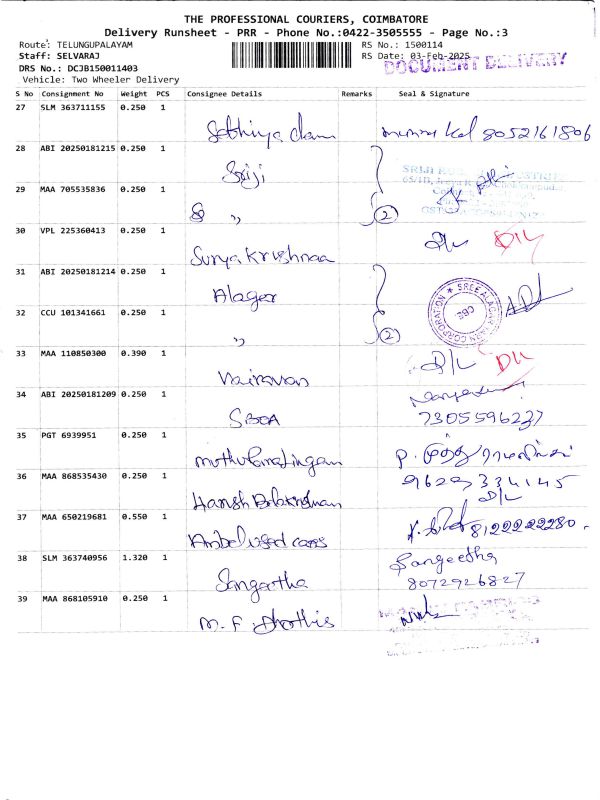 THE PROFESSIONAL COURIERS, COIMBATORE
Delivery Runsheet - PRR - Phone No.:0422-3505555 - Page No.:3
Route: TELUNGUPALAYAM RS No.: 1500114
Staff: SELVARAJ RS Date: 03-Feb-2025
DOCUMENT DELIVERY
DRS No.: DCJB150011403
Vehicle: Two Wheeler Delivery
S No Consignment No Weight PCS Consignee Details Remarks Seal & Signature
27 SLM 363711155 0.250 1
8052161806
28 ABI 20250181215 0.250 1
Sriji
29 MAA 705535836 0.250 1
" 2
30 VPL 225360413 0.250 1
Surya Krishnaa D/L D/L
31 ABI 20250181214 0.250 1
Alager
32 CCU 101341661 0.250 1
" 2
CBE
33 MAA 110850300 0.390 1
Vairavan D/L D/L
34 ABI 20250181209 0.250 1
SBOA 7305596237
35 PGT 6939951 0.250 1
muthuramalingam
36 MAA 868535430 0.250 1
Harish Balakrishnan 9629334145
D/L
37 MAA 650219681 0.550 1
cars 8122222280
38 SLM 363740956 1.320 1
Sangeetha
Sangartha 8072926827
39 MAA 868105910 0.250 1
M. F. Dhothis